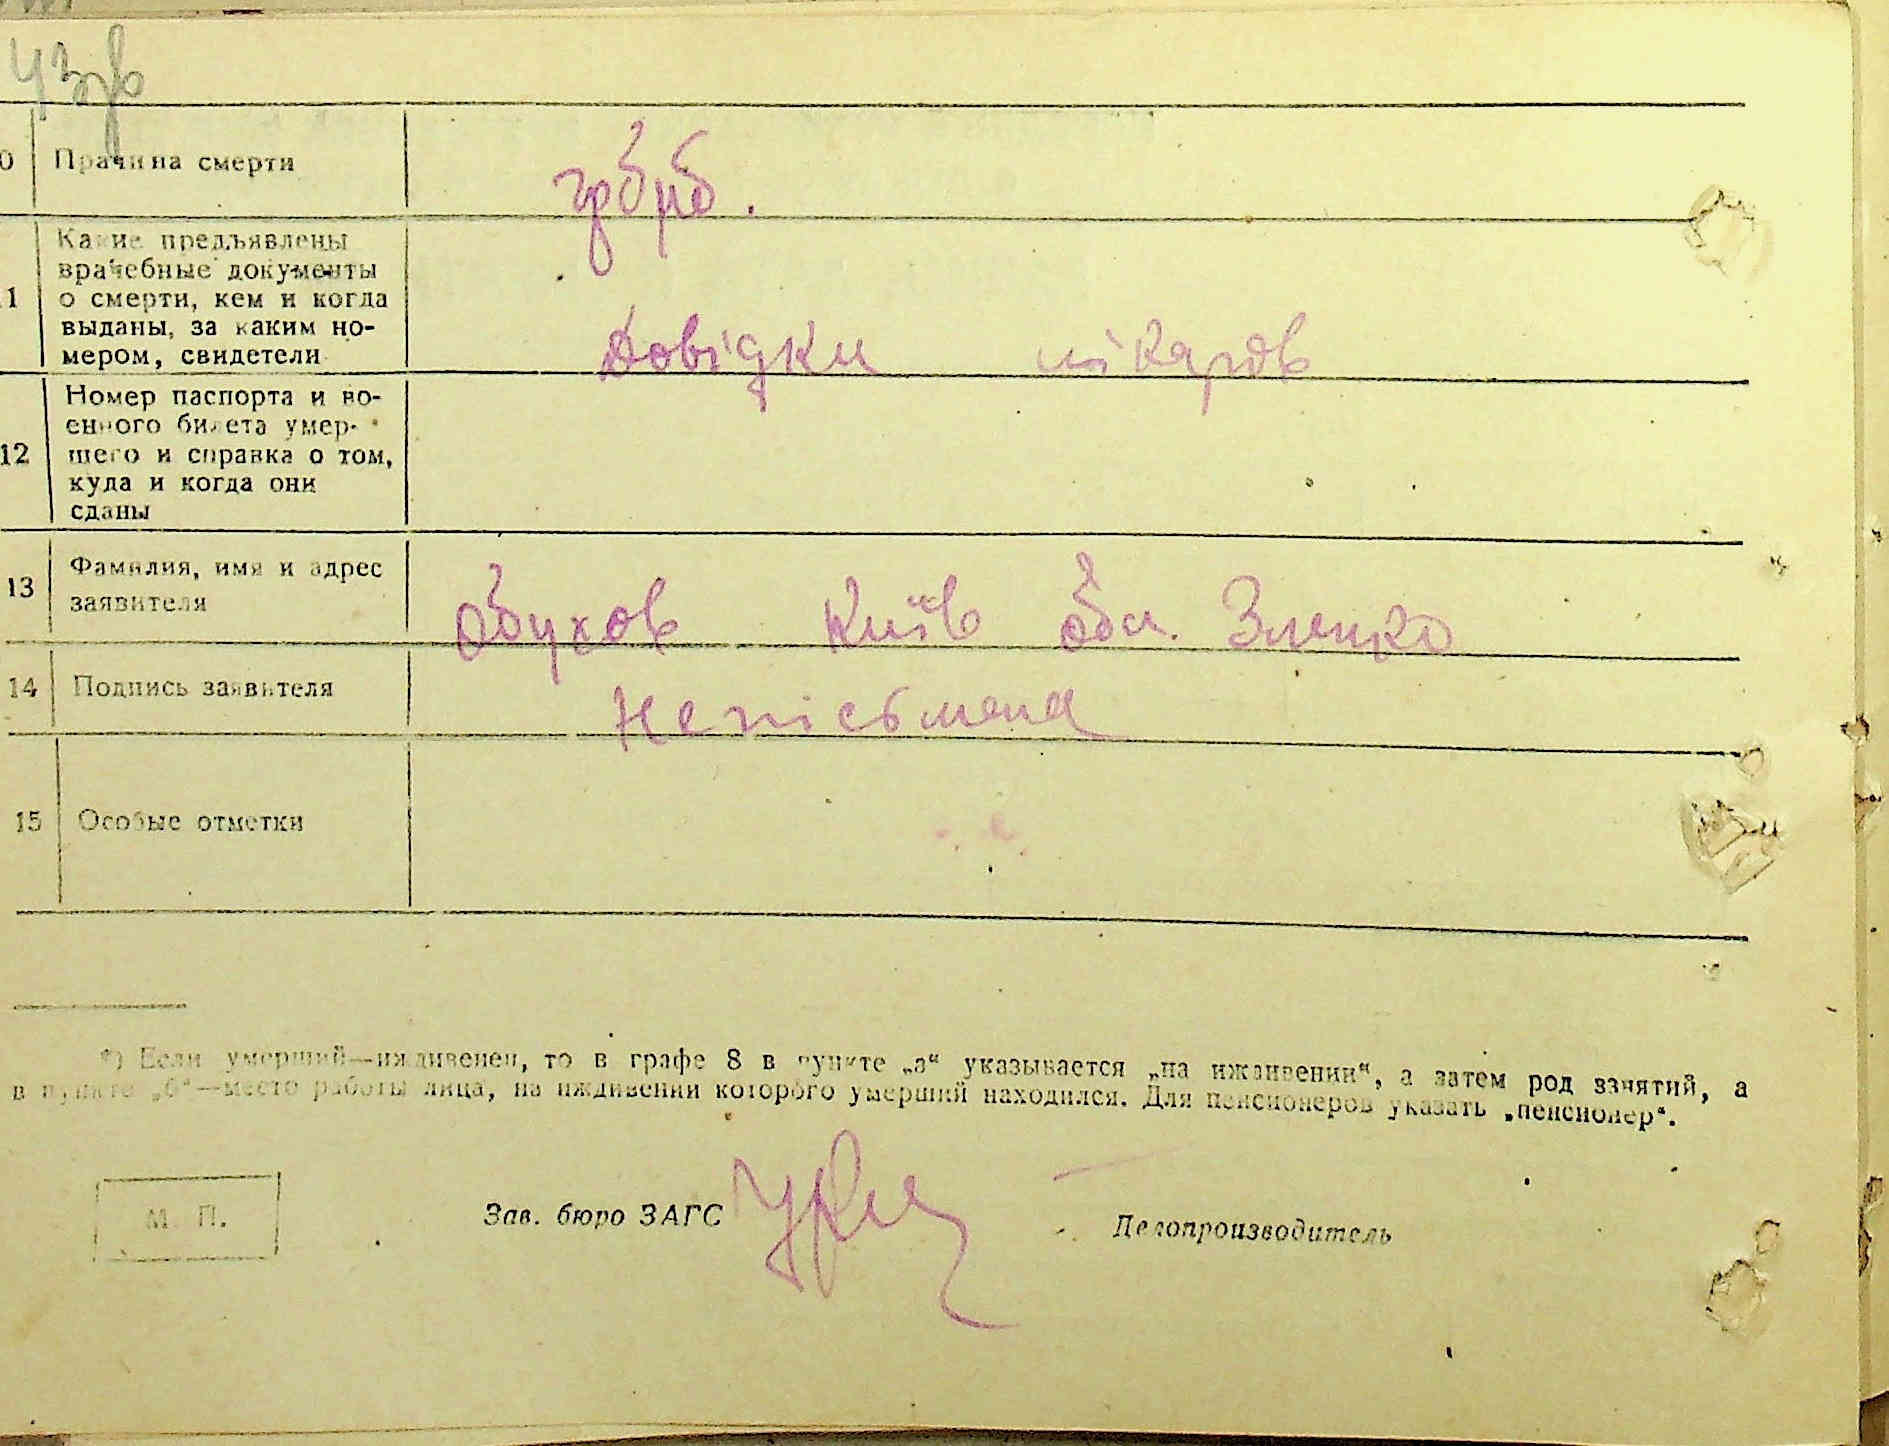 Причина смерти
Какие предъявлены
врачебные документы
о смерти, кем и когда
выданы, за каким но-
мером, свидетели
Довідки лікарів
12
Номер паспорта и во-
енного билета умер-
шего и справка о том,
куда и когда они
сданы
13
Фамилия, имя и адрес
заявителя
Обухов Київ обл.
14
Подпись заявителя
Неписьмена
15
Особые отметки
*) Если умерший—иждивенец, то в графе 8 в пункте „а“ указывается „на иждивении“, а затем род занятий, а
в пункте „б“—место работы лица, на иждивении которого умерший находился. Для пенсионеров указать „пенсионер“.
М. П.
Зав. бюро ЗАГС
Делопроизводитель